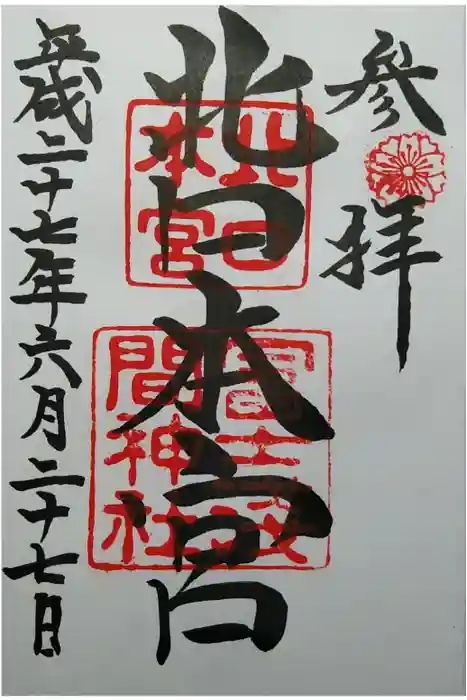 參拝
北口本宮
北口
本宮
冨士浅
間神社
平成二十七年六月二十七日